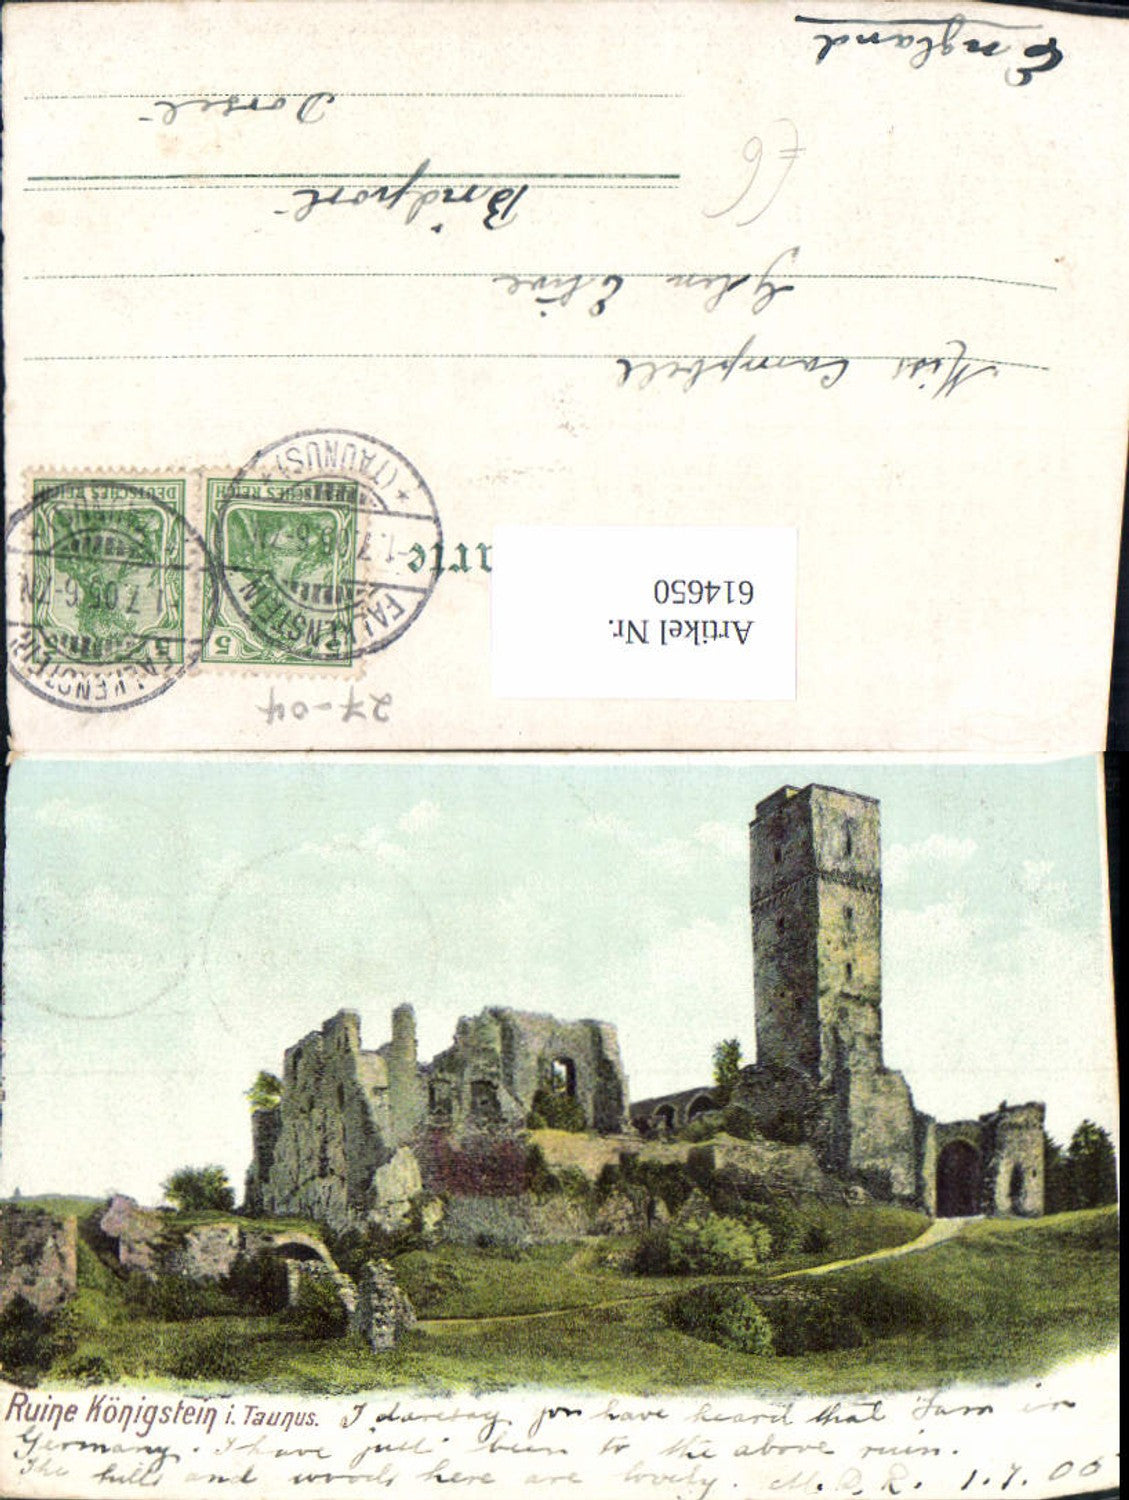 England
Dorset
Bridport
£6
Glen Etive
Miss Campbell
DEUTSCHES REICH
DEUTSCHES REICH
5 5
5 5
FALKENSTEIN
*(TAUNUS)*
1.7.06.6-7N
FALKENSTEIN
*(TAUNUS)*
-1.7.06.6-7N
arte
Artikel Nr.
614650
27-04
Ruine Königstein i. Taunus. I daresay you have heard that I am in
Germany. I have just been to the above ruin.
The hills and woods here are lovely. M. D. R. 1.7.06